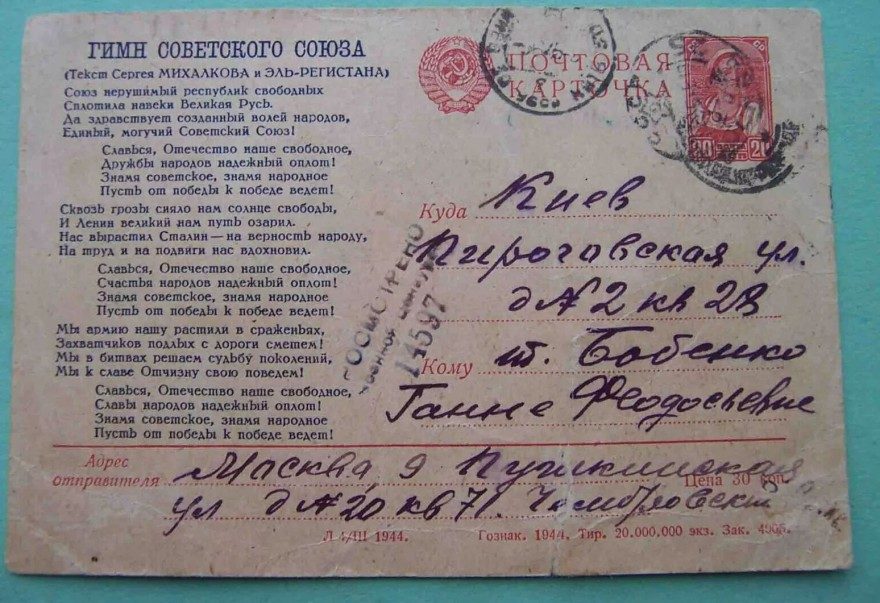 ГИМН СОВЕТСКОГО СОЮЗА
(Текст Сергея МИХАЛКОВА и ЭЛЬ-РЕГИСТАНА)
Союз нерушимый республик свободных
Сплотила навеки Великая Русь.
Да здравствует созданный волей народов,
Единый, могучий Советский Союз!
Славься, Отечество наше свободное,
Дружбы народов надежный оплот!
Знамя советское, знамя народное
Пусть от победы к победе ведет!
Сквозь грозы сияло нам солнце свободы,
И Ленин великий нам путь озарил.
Нас вырастил Сталин — на верность народу,
На труд и на подвиги нас вдохновил.
Славься, Отечество наше свободное,
Счастья народов надежный оплот!
Знамя советское, знамя народное
Пусть от победы к победе ведет!
Мы армию нашу растили в сраженьях,
Захватчиков подлых с дороги сметем!
Мы в битвах решаем судьбу поколений,
Мы к славе Отчизну свою поведем!
Славься, Отечество наше свободное,
Славы народов надежный оплот!
Знамя советское, знамя народное
Пусть от победы к победе ведет!
ПОЧТОВАЯ
КАРТОЧКА
Куда Киев
Пирогавская ул.
д№2 кв 28
Кому т. Бабенко
Ганне Феодосьевне
ПРОСМОТРЕНО
Военной Цензурой
14597
Адрес
отправителя Москва 9 Пушкинская
Цена 30 коп.
ул д№20 кв 71.
Л 4/III 1944.
Гознак. 1944. Тир. 20.000,000 экз. Зак.